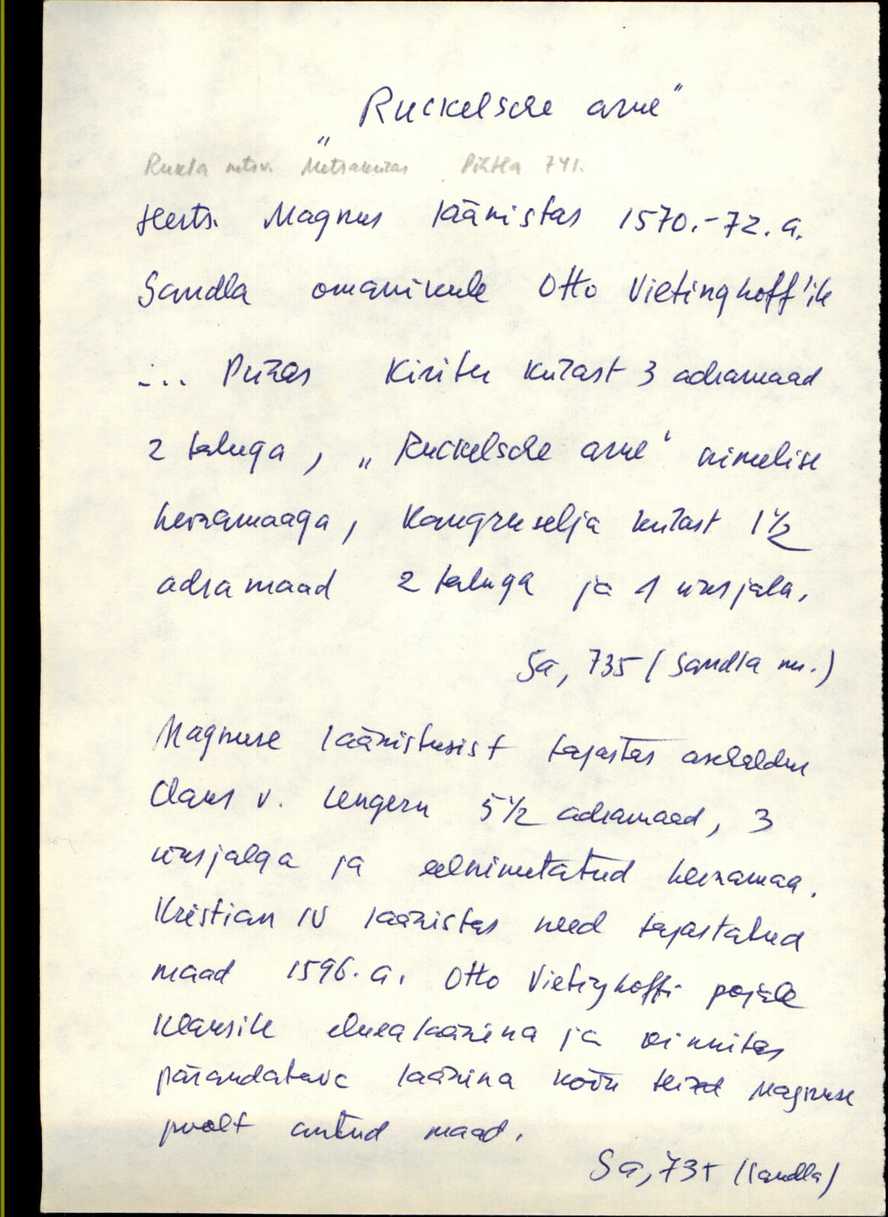 „Ruckelsche arne"
Rukla metsv. Metsaküas Pihtla 741.
Herts. Magnus läänistas 1570.-72. a.
Sandla omanikule Otto Vietinghoff'ile
... Püha Kiritu külast 3 adramaad
2 taluga, „Ruckelsche arne" nimelise
heinamaaga, Kangruselja külast 1 1/2
adramaad 2 taluga ja 1 üksjala.
Sa, 735 (Sandla m.)
Magnuse läänistusist tajastas asehaldur
Claus v. Ungern 5 1/2 adramaad, 3
üksjalga ja eelnimetatud heinamaa.
Kristian IV läänistas need tajastatud
maad 1596. a. Otto Vietinghoffi pojale
Klausile eluea läänina ja kinnitas
pärandatava läänina kõik teised Magnuse
poolt antud maad.
Sa, 735 (Sandla)